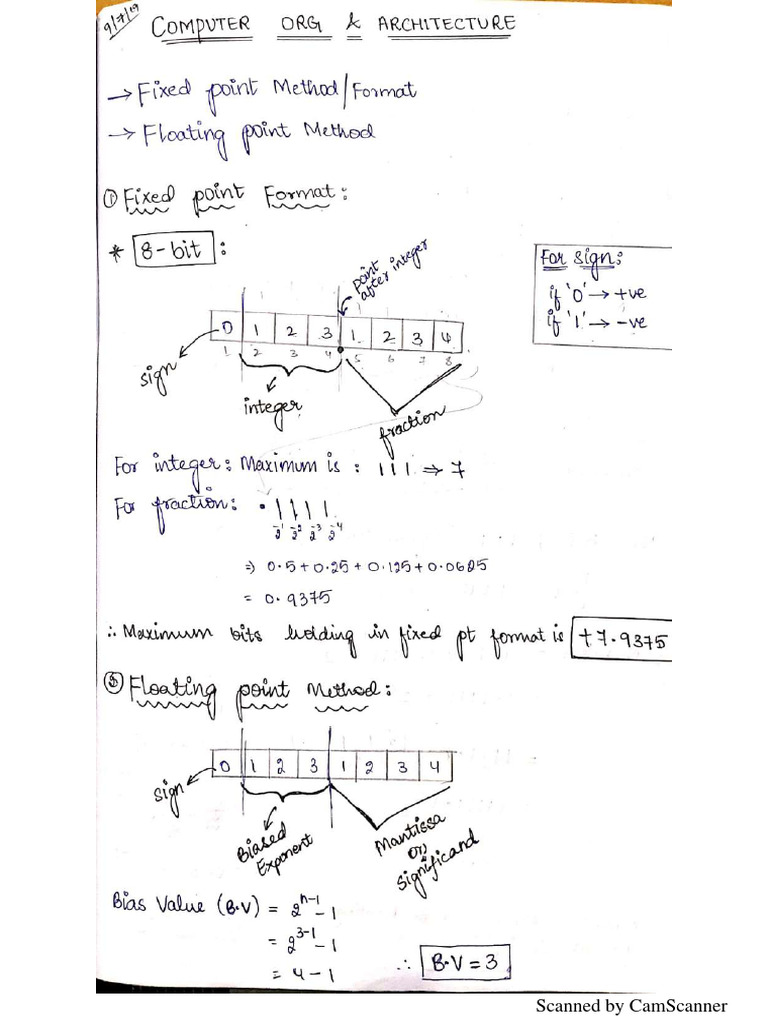 9/7/19
COMPUTER ORG & ARCHITECTURE
→ Fixed point Method/Format
→ Floating point Method
① Fixed point Format:
* 8-bit:
point after integer
For sign:
if '0' → +ve
if '1' → -ve
0 1 2 3 1 2 3 4
1 2 3 4 5 6 7 8
sign
integer
fraction
For integer: Maximum is : 111 ⇒ 7
For fraction: • 1 1 1 1
2^-1 2^-2 2^-3 2^-4
⇒ 0.5 + 0.25 + 0.125 + 0.0625
= 0.9375
∴ Maximum bits holding in fixed pt format is +7.9375
② Floating point Method:
0 1 2 3 1 2 3 4
sign
Biased Exponent
Mantissa
(or)
Significand
Bias Value (B.V) = 2^n-1 - 1
= 2^3-1 - 1
= 4 - 1
∴ B.V = 3
Scanned by CamScanner